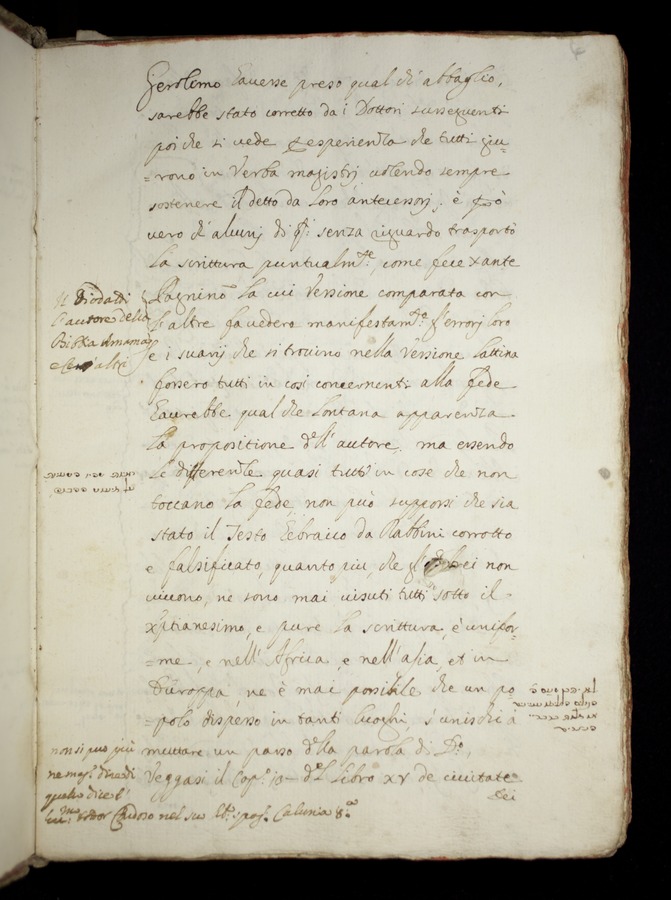 Gerolemo havesse preso qual ch'abbaglio,
sarebbe stato corretto da i Dottori susseguenti
poi che si vede esperienza che tutti giu=
=rono in Verba magistrj volendo sempre
sostenere il detto da Loro antecessorj; è però
vero ch'alcunj di qti senza riguardo trasportò
La scrittura puntualmte, come fece xante
Pagnino La cui Versione comparata con
l'altre fa vedere manifestamte gl'errorj loro
e i svarij che si trovino nella Versione Lattina
fossero tutti in cose concernenti alla fede
haurebbe qual che Lontana apparenza
La propositione dell'autore. ma essendo
Le differenze quasi tutti in cose che non
toccano La fede, non può supporsi che sia
stato il Testo hebraico da Rabbini corrotto
e falsificato, quanto piu, che gl'hebrei non
vivono, ne sono mai vissuti tutti sotto il
xptianesimo, e pure La scrittura, è unifor=
=me, e nell'Africa, e nell'asia, et in
Europa, ne è mai possibile che un po
=polo disperso in tanti luoghi s'unischi a
muttare un passo della parola di D.o,
Veggasi il Cap.o 10 del Libro XV de civitate
Dei
Diodatti
l'autore della
Bibbia
altri
non si puo più
di
quello dice l'
Cardoso nel suo Calunia 8.a